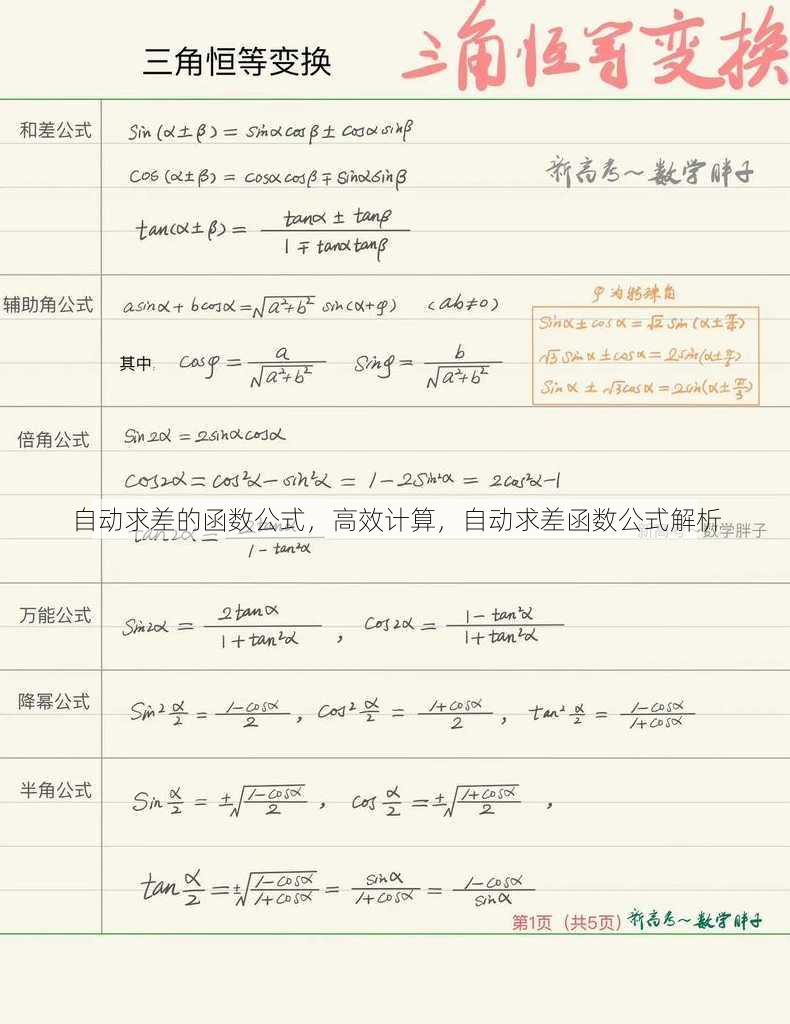 三角恒等变换
三角恒等变换
和差公式
sin(α±β) = sinαcosβ ± cosαsinβ
新高考~数学胖子
cos(α±β) = cosαcosβ ∓ sinαsinβ
tan(α±β) = (tanα ± tanβ) / (1 ∓ tanαtanβ)
辅助角公式
asinα + bcosα = √(a²+b²) sin(α+φ) (ab≠0)
其中: cosφ = a/√(a²+b²) sinφ = b/√(a²+b²)
φ为特殊角
sinα ± cosα = √2 sin(α ± π/4)
√3 sinα ± cosα = 2sin(α ± π/6)
sinα ± √3cosα = 2sin(α ± π/3)
倍角公式
sin2α = 2sinαcosα
cos2α = cos²α - sin²α = 1 - 2sin²α = 2cos²α - 1
自动求差的函数公式，高效计算，自动求差函数公式解析
tan2α = 2tanα / (1 - tan²α)
数学胖子
万能公式
sin2α = 2tanα / (1 + tan²α) , cos2α = (1 - tan²α) / (1 + tan²α)
降幂公式
sin² α/2 = (1-cosα)/2 , cos² α/2 = (1+cosα)/2 , tan² α/2 = (1-cosα)/(1+cosα)
半角公式
sin α/2 = ±√((1-cosα)/2) , cos α/2 = ±√((1+cosα)/2) ,
tan α/2 = ±√((1-cosα)/(1+cosα)) = sinα/(1+cosα) = (1-cosα)/sinα
第1页（共5页）新高考~数学胖子